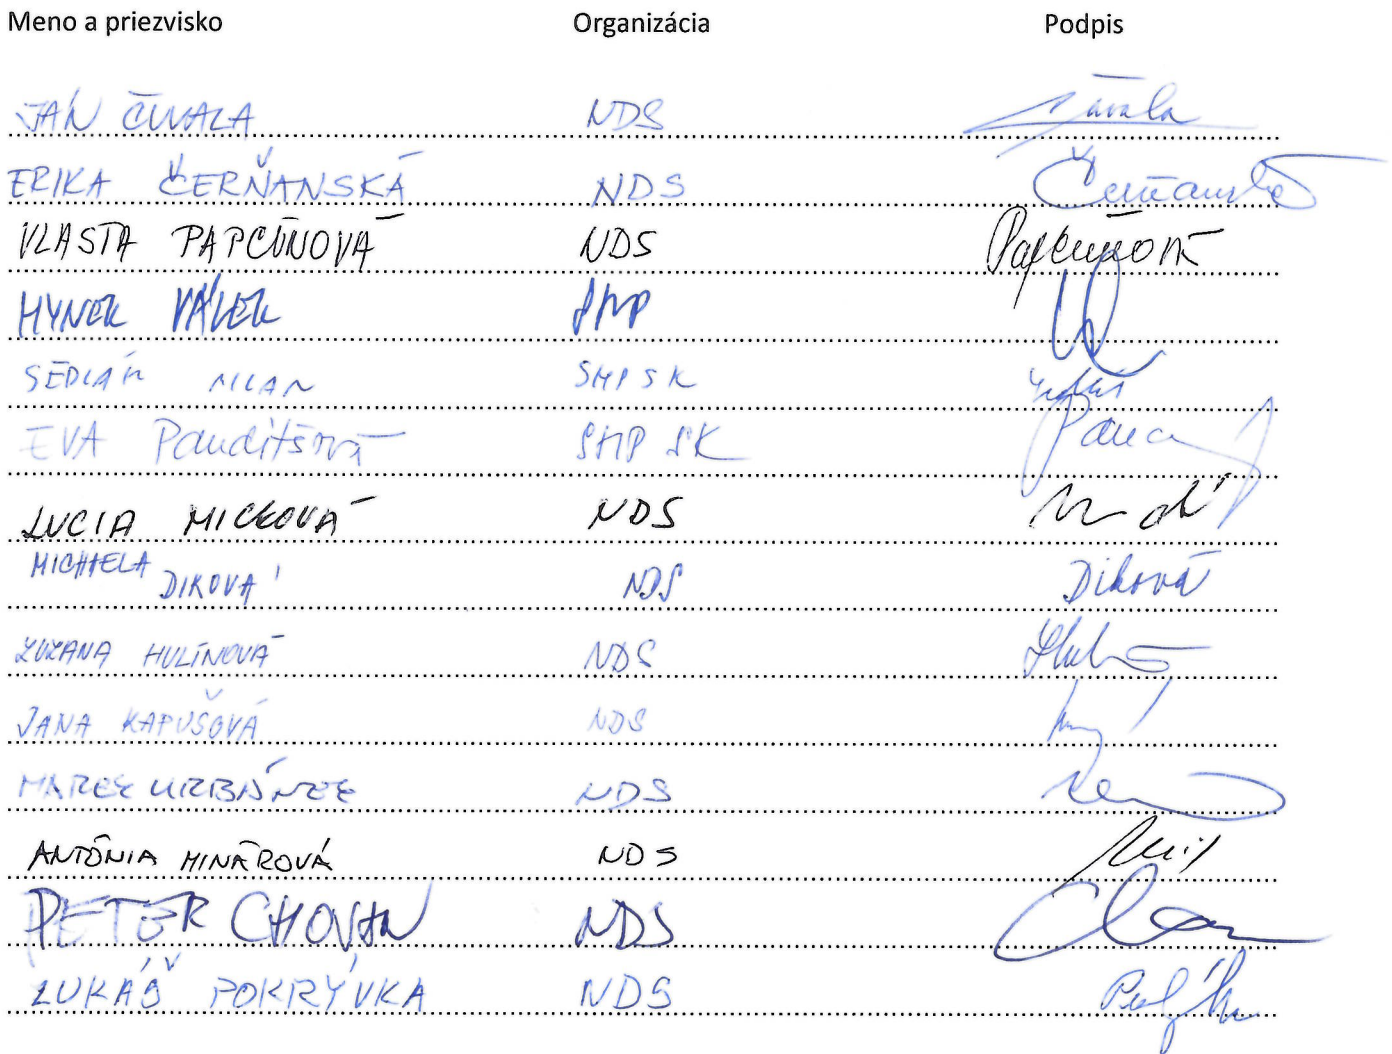 Meno a priezvisko Organizácia Podpis
JÁN ČUVALA NDS
ERIKA ČERŇANSKÁ NDS Čerňanská
VLASTA PAPCÚNOVÁ NDS Papcúnová
HYNEK VÁLEK SMP
SEDLÁK MILAN SMP SK
EVA Panditšová SMP SK
LUCIA MICKOVÁ NDS
MICHAELA DIKOVÁ NDS Diková
ZUZANA HULÍNOVÁ NDS
JANA KAPUŠOVÁ NDS
MAREK URBÁNEK NDS
ANTÓNIA MINÁROVÁ NDS
PETER CHOVAN NDS
LUKÁŠ POKRÝVKA NDS